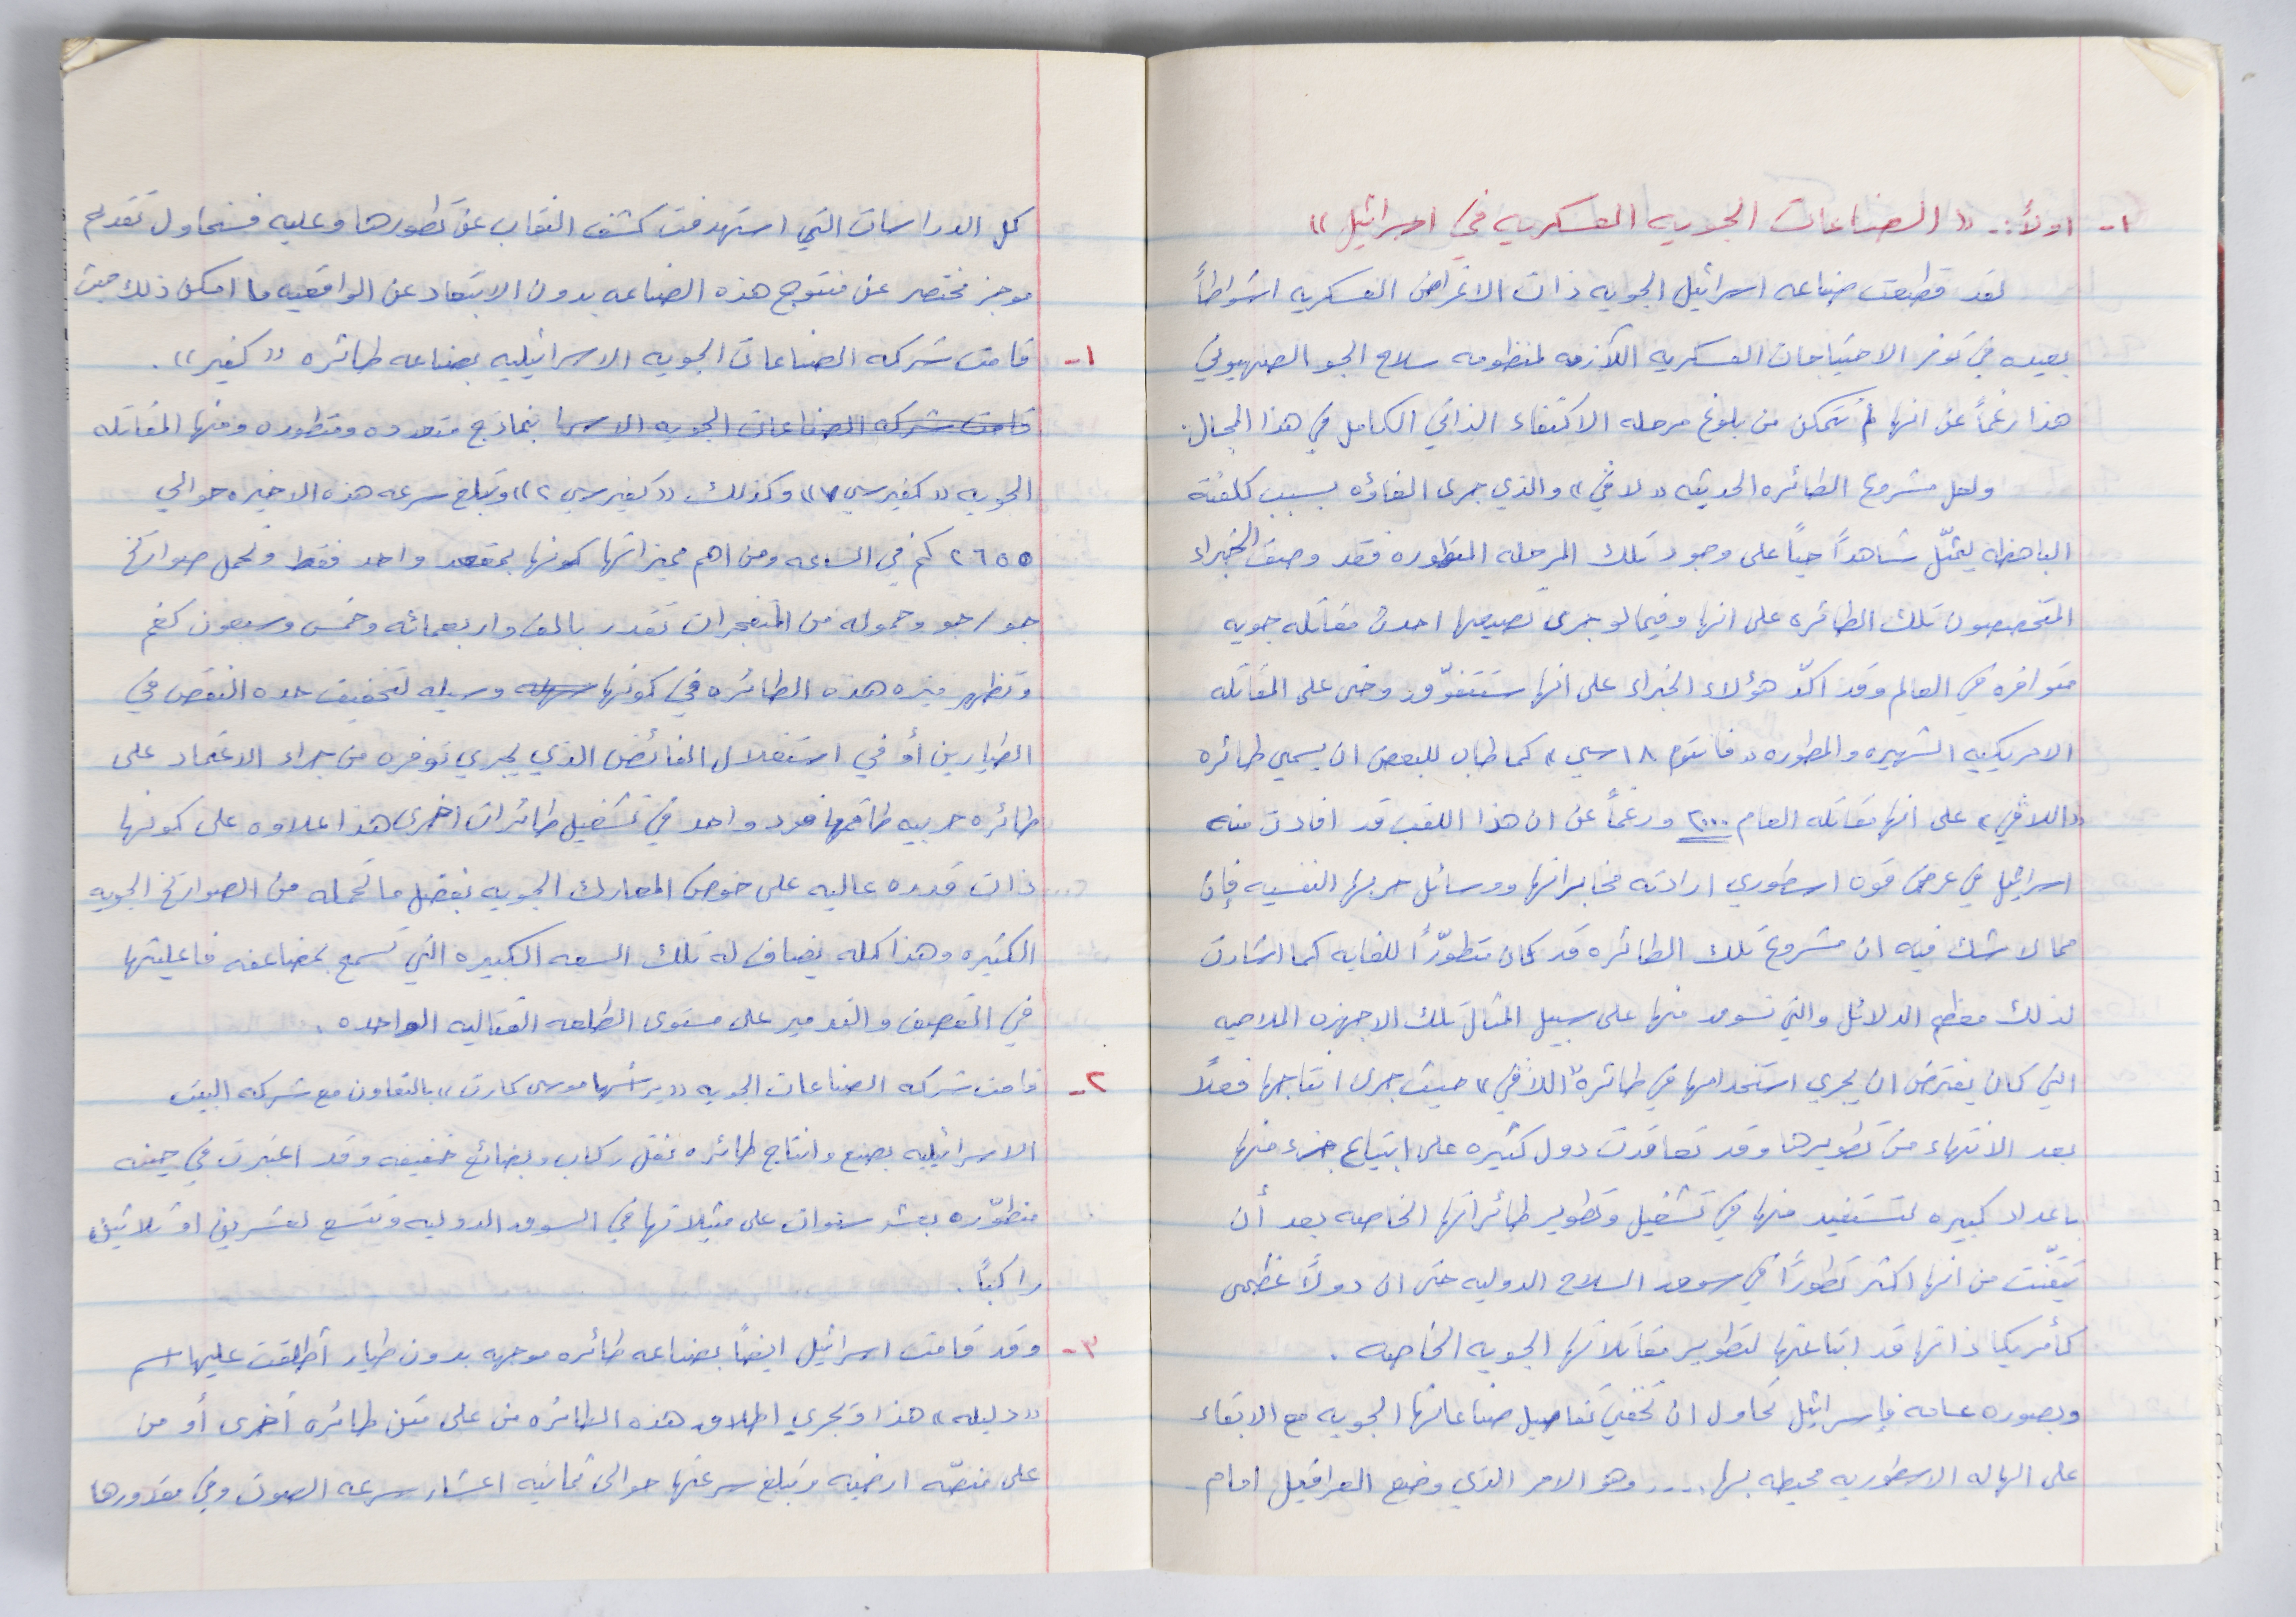 ١- اولاً:. « الصناعات الجويه العسكريه في اسرائيل »
لقد قطعت صناعه اسرائيل الجويه ذات الاغراض العسكريه اشواطاً
بعيده في توفر الاحتياجات العسكريه اللازمه لمنظومه سلاح الجو الصهيوني
هذا رغماً عن انها لم تتمكن من بلوغ مرحله الاكتفاء الذاتي الكامل في هذا المجال.
ولعل مشروع الطائره الحديثه « لافي » والذي جرى الغاؤه بسبب كلفته
الباهضه يمثّل شاهداً حياً على وجود تلك المرحله المتطوره فقد وصف الخبراء
المتخصصون تلك الطائره على انها وفيما لو جرى تصنيعها احدث مقاتله جويه
متوافره في العالم وقد اكدّ هؤلاء الخبراء على انها ستتفوّق وحتى على المقاتله
الامريكيه الشهيره والمطوره « فانتوم ١٨ سي » كما طاب للبعض ان يسمي طائره
«اللافي» على انها مقاتله العام ٢٠٠٠ ورغماً عن ان هذا اللقب قد افادت منه
اسرائيل في عرض قوه اسطوري ارادته مخابراتها ووسائل حربها النفسيه فإن
مما لا شك فيه ان مشروع تلك الطائره قد كان متطوّراً للغايه كما اشارت
لذلك معظم الدلائل والتي نسوق منها على سبيل المثال تلك الاجهزه الملاحيه
التي كان يفترض ان يجري استخدامها في طائرة «اللافي» حيث جرى انتاجها فعلاً
بعد الانتهاء من تطويرها وقد تعاقدت دول كثيره على ابتياع جزء منها
باعداد كبيره لتستفيد منها في تشغيل وتطوير طائراتها الخاصه بعد أن
تيقّنت من انها اكثر تطوراً في سوق السلاح الدوليه حتى ان دولاً عظمى
كأمريكا ذاتها قد ابتاعتها لتطوير مقاتلاتها الجويه الخاصه .
وبصوره عامه فإسرائيل تحاول ان تخفي تفاصيل صناعاتها الجويه مع الابقاء
على الهاله الاسطوريه محيطه بها .... وهو الامر الذي وضع العراقيل امام
كل الدراسات التي استهدفت كشف النقاب عن تطورها وعليه فسنحاول تقديم
موجز مختصر عن منتوج هذه الصناعه بدون الابتعاد عن الواقعيه ما امكن ذلك حيث
١- قامت شركه الصناعات الجويه الاسرائيليه بصناعه طائره « كفير » .
قامت شركه الصناعات الجويه الاسرا بنماذج متعدده ومتطوره ومنها المقاتله
الجويه « كفير سي ٧ » وكذلك « كفير سي ٢ » وتبلغ سرعه هذه الاخيره حوالي
٢٦٥٥ كم في الساعه ومن اهم مميزاتها كونها بمقعد واحد فقط وتحمل صواريخ
جو/جو وحموله من المتفجرات تقدر بالف واربعمائه وخمس وسبعون كغم
وتظهر ميزه هذه الطائره في كونها سهله وسيله لتخفيف حده النقص في
الطيارين أو في استغلال الفائض الذي يجري توفره من جراء الاعتماد على
طائره حربيه طاقمها فرد واحد في تشغيل طائرات اخرى هذا علاوه على كونها
ذات قدره عاليه على خوض المعارك الجويه بفضل ما تحمله من الصواريخ الجويه
الكثيره وهذا كله يضاف له تلك السعه الكبيره التي تسمح بمضاعفه فاعليتها
في القصف والتدمير على مستوى الطلعه القتاليه الواحده .
٢- قامت شركه الصناعات الجويه « يرأسها موسى كارت » بالتعاون مع شركه البيت
الاسرائيليه بصنع وانتاج طائره نقل ركاب وبضائع خفيفه وقد اعتبرت في حينه
متطوّره بعشر سنوات على مثيلاتها في السوق الدوليه وتتسع لعشرين او ثلاثين
راكباً .
٣- وقد قامت اسرائيل ايضاً بصناعه طائره موجهه بدون طيار أطلقت عليها اسم
« دليله » هذا ويجري اطلاق هذه الطائره من على متن طائره أخرى أو من
على منصّه ارضيه وتبلغ سرعتها حوالى ثمانيه اعشار سرعه الصوت وفي مقدورها